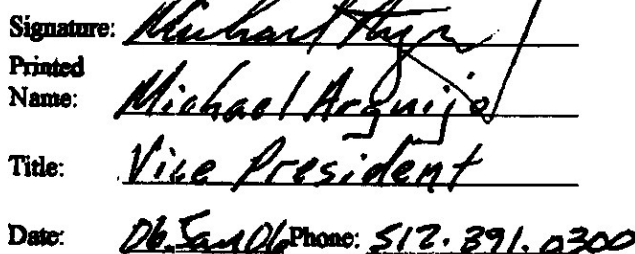 Signature:
Printed
Name: Michael Arguijo
Title: Vice President
Date: 06 Jan 06 Phone: 512.391.0300